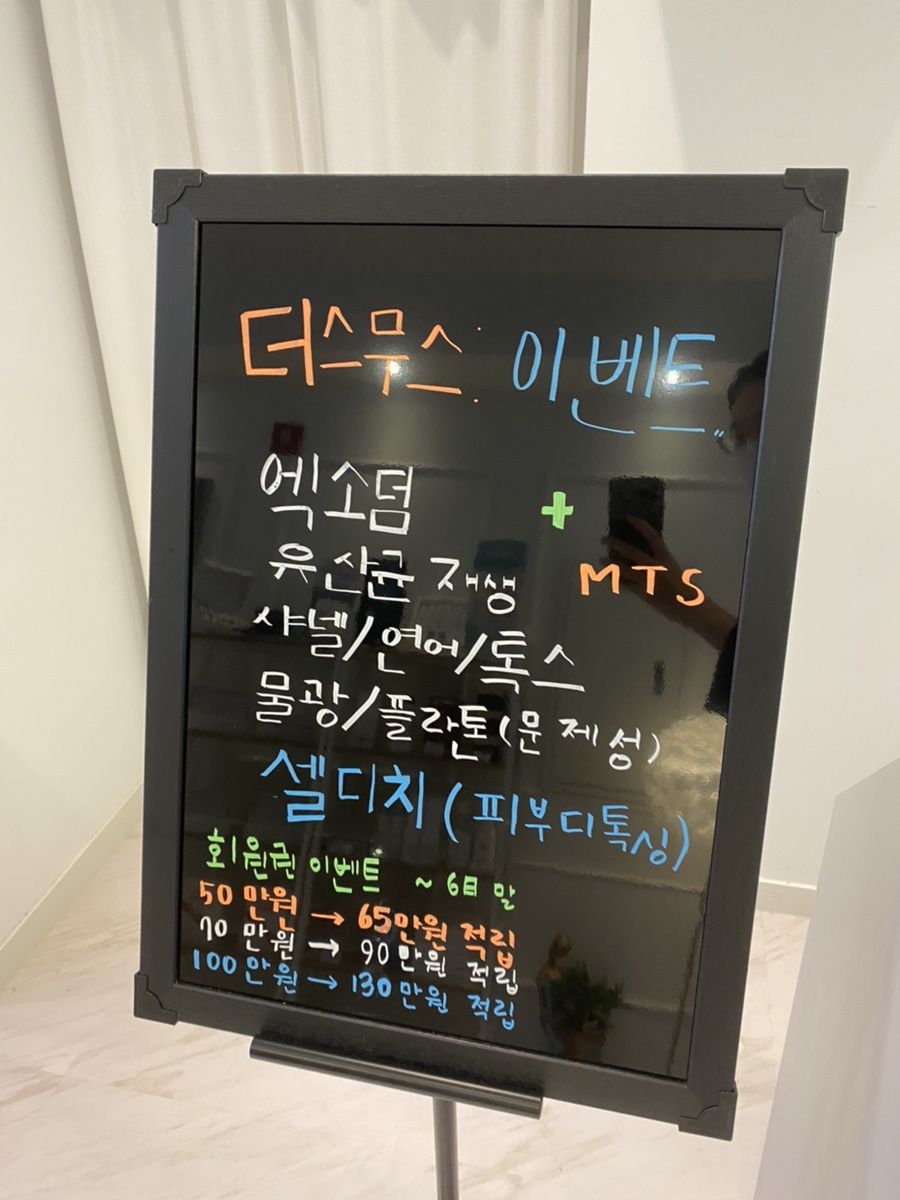 더스무스: 이벤트
엑소덤 +
유산균 재생 MTS
샤넬/연어/톡스
물광/플라톤(문제성)
셀디치(피부디톡싱)
회원권 이벤트 ~6月말
50만원 → 65만원 적립
70만원 → 90만원 적립
100만원 → 130만원 적립